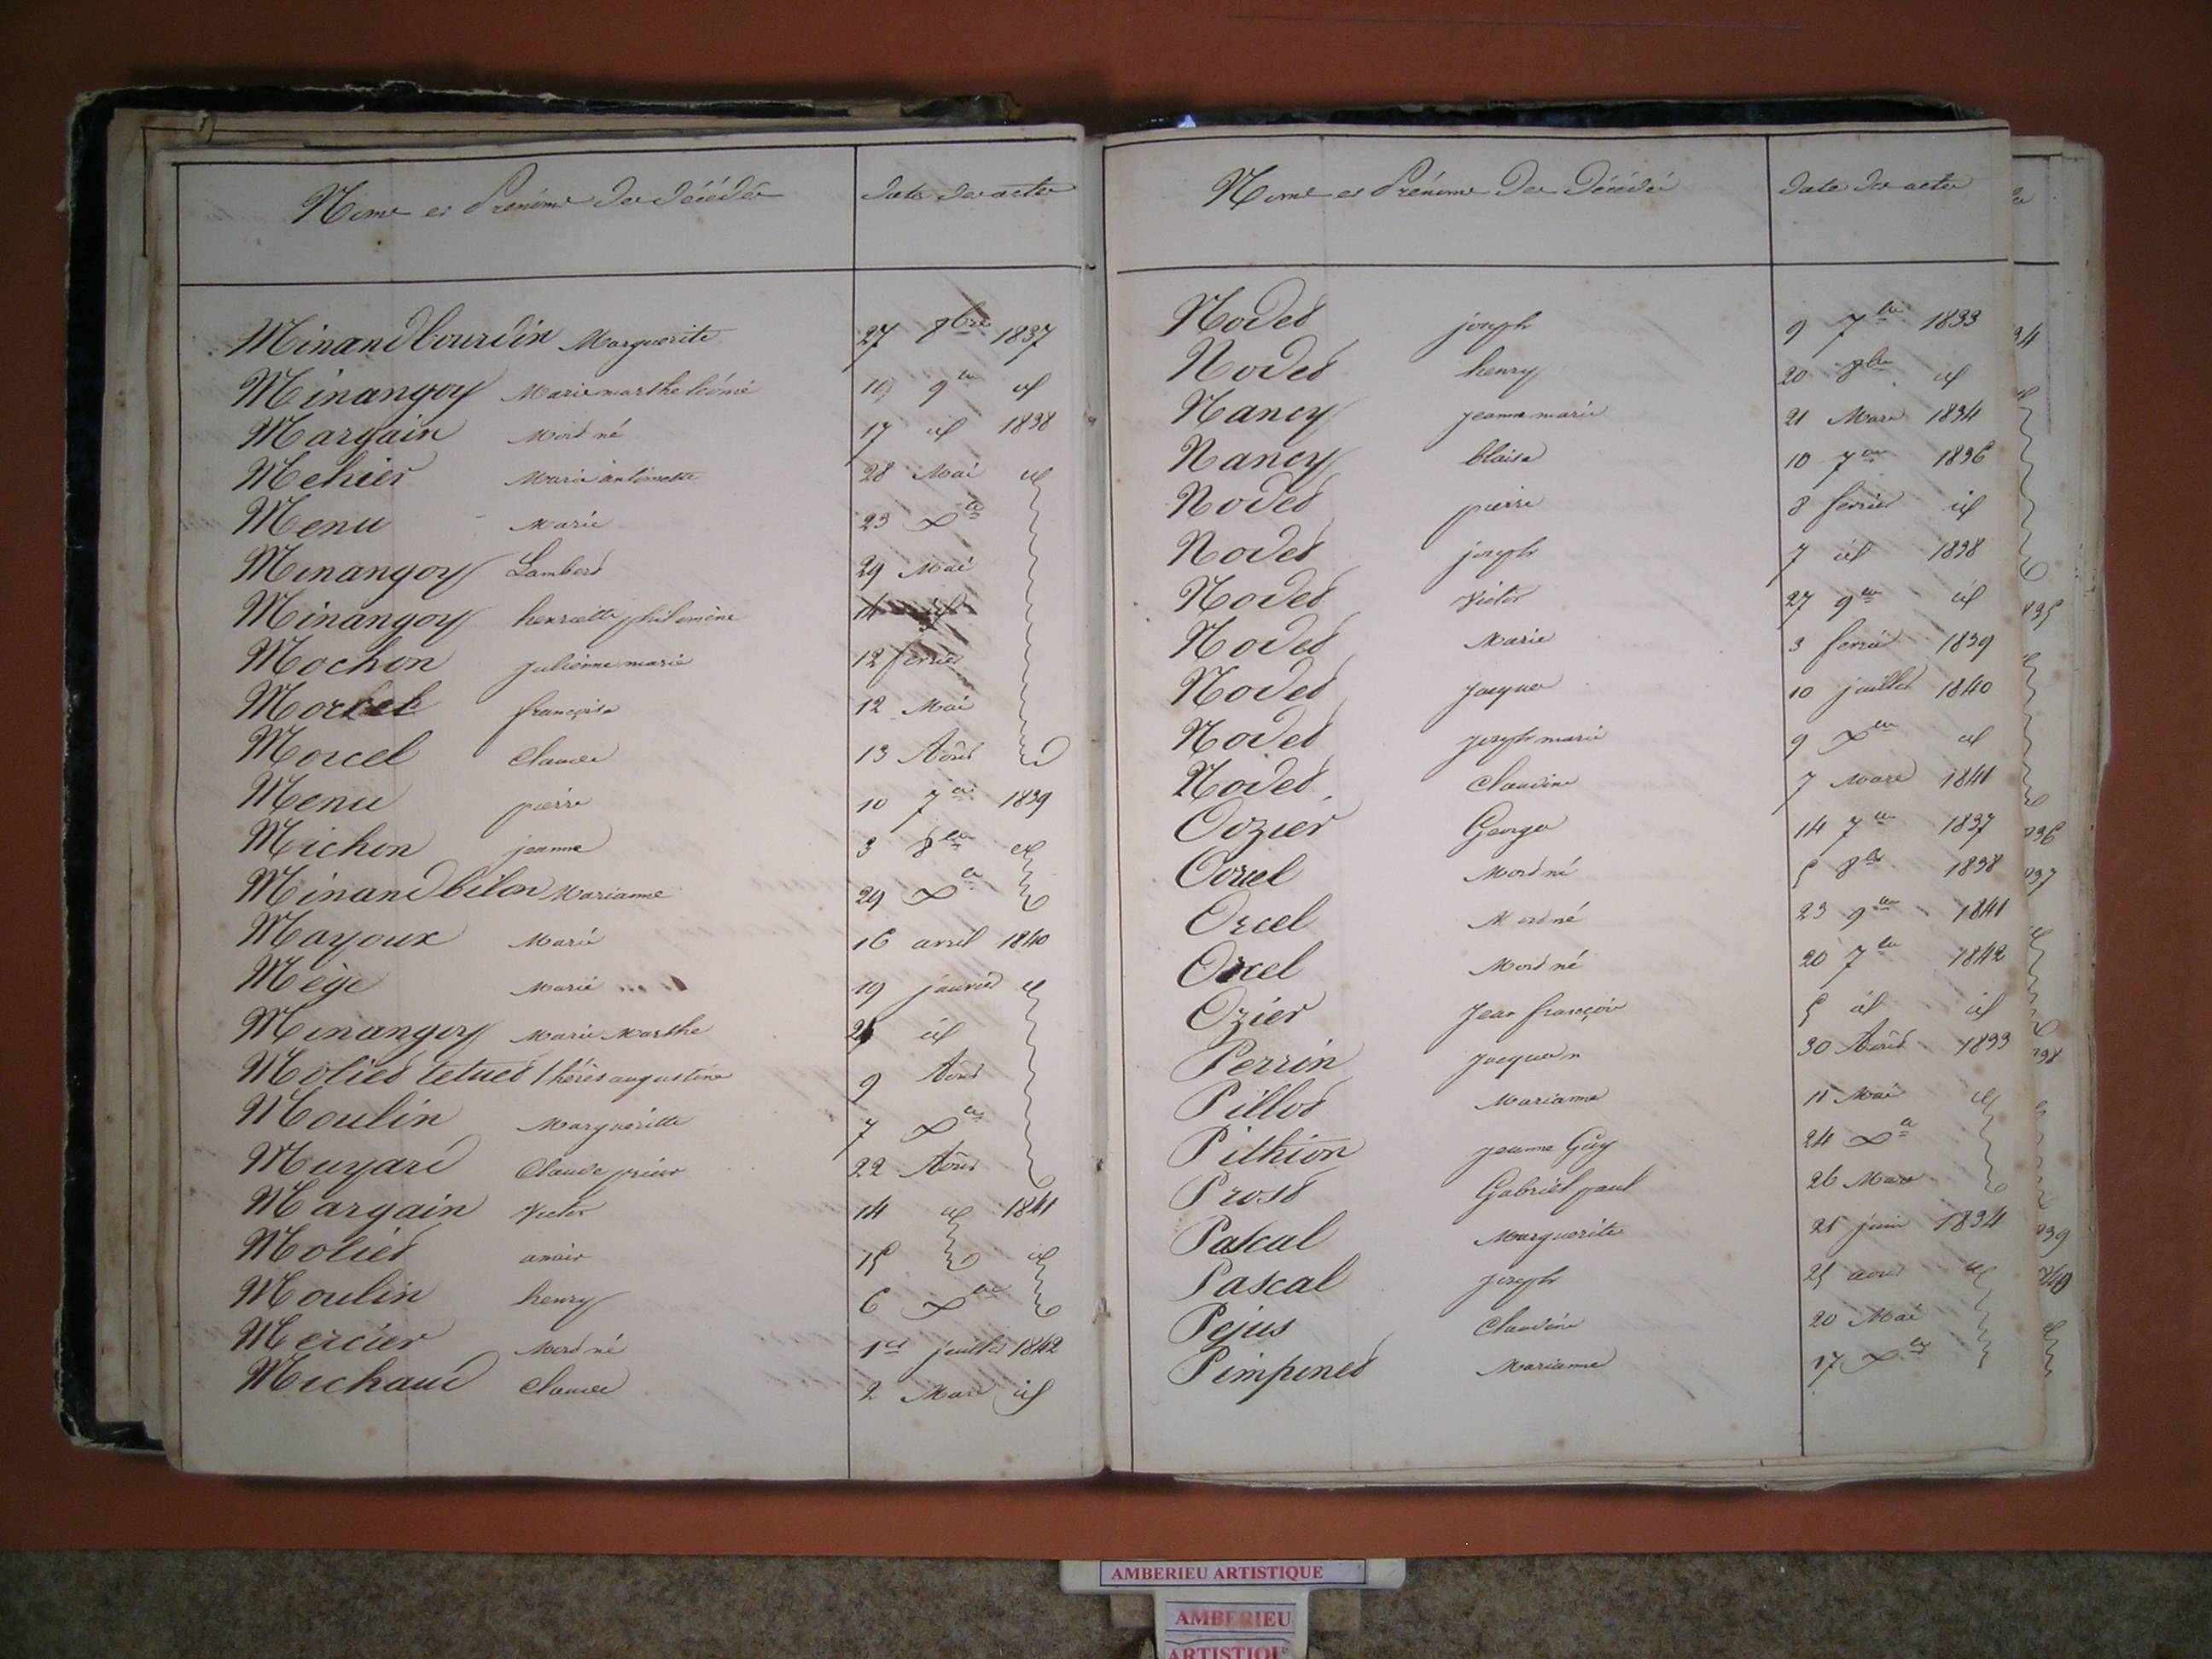 Noms et Prénoms des décédés date des actes
Minand bourdin Marguerite 27 8bre 1837
Minangoy Marie marthe léonie 10 9bre id
Margain Mort né 17 id 1838
Mehier Marie antoinette 28 Mai id
Menu Marie 23 Xbre
Minangoy Lambert 29 Mai
Minangoy henriette philomène
Mochon julienne marie 12 février
Morcel françoise 12 Mai
Morcel Claude 13 Août
Menu pierre 10 7bre 1839
Michon jeanne 3 8bre id
Minand bilon Marianne 29 Xbre
Mayoux Marie 16 avril 1840
Mège Marie 19 janvier id
Minangoy Marie Marthe id
Moliet tetuet thérès augustine 9 Août
Moulin Marguerite 7 Xbre
Muyard Claude 22 Août
Margain Victor 14 id 1841
Moliet 15 id
Moulin henry 6 Xbre
Mercier Mort né 1er juillet 1842
Michaud Claude 2 Mars id
Noms et Prénoms des décédés date des actes
Nodet joseph 9 7bre 1833
Nodet henry 20 8bre id
Nancy jeanne marie 21 Mars 1834
Nancy blaise 10 7bre 1836
Nodet pierre 8 février id
Nodet joseph 7 id 1838
Nodet Victor 27 9bre id
Nodet Marie 3 février 1839
Nodet jacques 10 juillet 1840
Nodet joseph marie 9 Xbre id
Nodet Claudine 7 Mars 1841
Orzier George 14 7bre 1837
Orcel Mort né 5 8bre 1838
Orcel Mort né 23 9bre 1841
Orcel Mort né 20 7bre 1842
Ozier Jean françois 5 id id
Perrin 30 Août 1833
Pillot Marianne 11 Mai id
Pithion jeanne Guy 24 Xbre
Prost Gabriel paul 26 Mars
Pascal Marguerite 21 juin 1834
Pascal joseph 25 août id
Pejus Claudine 20 Mai
Pimpinet Marianne 17 Xbre
AMBERIEU ARTISTIQUE
AMBERIEU
ARTISTIQUE